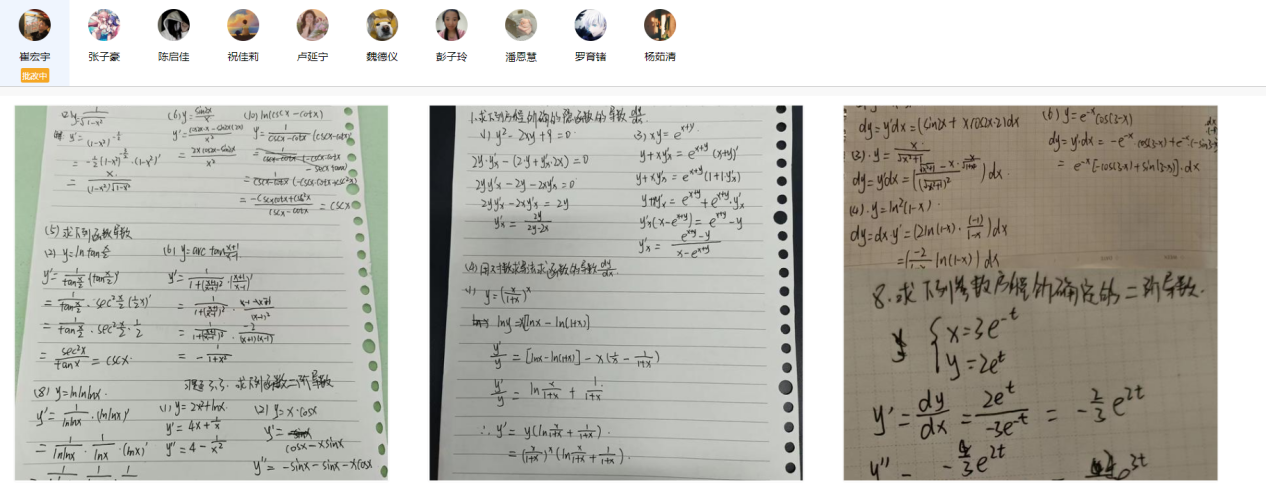 崔宏宇 张子豪 陈启佳 祝佳莉 卢延宁 魏德仪 彭子玲 潘恩慧 罗育锗 杨茹清
批改中
(2) y = 1/√(1-x²)
y' = 1/(1-x²)^
= -1/2 (1-x²)^ · (1-x²)'
= x/((1-x²)√(1-x²))
(6) y = sin2x/x
= (2xcos2x-sin2x)/x²
(10) ln(cscx-cotx)
y' = 1/(cscx-cotx) (cscx-cotx)'
= 1/(cscx-cotx) (-cscx·cotx+csc²x)
= (-cscxcotx+csc²x)/(cscx-cotx) = cscx
(5) 求下列函数导数
(2) y = ln tan x/2
y' = 1/(tan x/2) · (tan x/2)'
= 1/(tan x/2) · sec² x/2 (1/2 x)'
= 1/(tan x/2) · sec² x/2 · 1/2
= sec²x/tanx = cscx.
(6) y = arc tan (x+1)/(x-1)
y' = 1/(1+((x+1)/(x-1))²) · ((x+1)/(x-1))'
= - 1/(1+x²)
(8) y = lnlnlnx.
y' = 1/lnlnx · (lnlnx)'
= 1/lnlnx · 1/lnx · (lnx)'
习题3.3. 求下列函数二阶导数
(1) y = 2x²+lnx.
y' = 4x + 1/x
y'' = 4 - 1/x²
(2) y = x·cosx
y' =
cosx - xsinx
y'' = -sinx-sinx-xcosx
1.求下列方程所确的隐函数的导数 dy/dx.
(1) y² - 2xy + 9 = 0.
2y·y'x - (2·y + y'x·2x) = 0
2yy'x - 2y - 2xy'x = 0
2yy'x - 2xy'x = 2y
y'x = 2y/(2y-2x)
(3) xy = e^(x+y)
y + xy'x = e^(x+y) (x+y)'
y + xy'x = e^(x+y) (1+1·y'x)
y + xy'x = e^(x+y) + e^(x+y)·y'x
y'x(x-e^(x+y)) = e^(x+y) - y
y'x = (e^(x+y) - y)/(x-e^(x+y))
(4) 用对数求导法求函数的导数 dy/dx.
(1) y = (x/(1+x))^x
lny = x[lnx - ln(1+x)]
y'/y = [lnx-ln(1+x)] - x(1/x - 1/(1+x))
y'/y = ln x/(1+x) + 1/(1+x)
∴ y' = y(ln x/(1+x) + 1/(1+x)).
= (x/(1+x))^x (ln x/(1+x) + 1/(1+x)).
dy = y'dx = (sin2x + xcos2x·2)dx
(3). y = x/√(x²+1)
(4). y = ln²(1-x).
dy = dx·y' = (2ln(1-x)· (-1)/(1-x)) dx
= (-2/(1-x) · ln(1-x)) dx
(6) y = e^-x cos(3-x)
= e^-x [-cos(3-x) + sin(3-x)]·dx
8.求下列参数方程所确定的二阶导数.
x = 3e^-t
y = 2e^t
y' = dy/dx = 2e^t/(-3e^-t) = - 2/3 e^2t